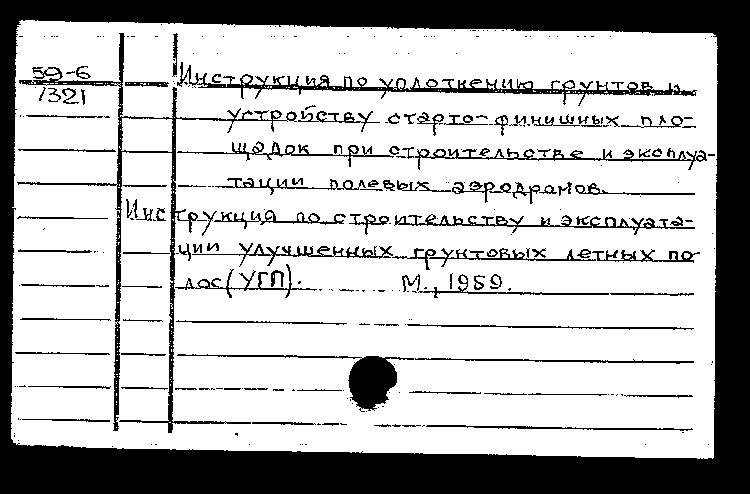 59-6
1321
Инструкция по уплотнению грунтов и
устройству старто-финишных пло-
щадок при строительстве и эксплуа-
тации полевых аэродромов.
Инструкция по строительству и эксплуата-
ции улучшенных грунтовых летных по-
лос (УГП). М., 1959.